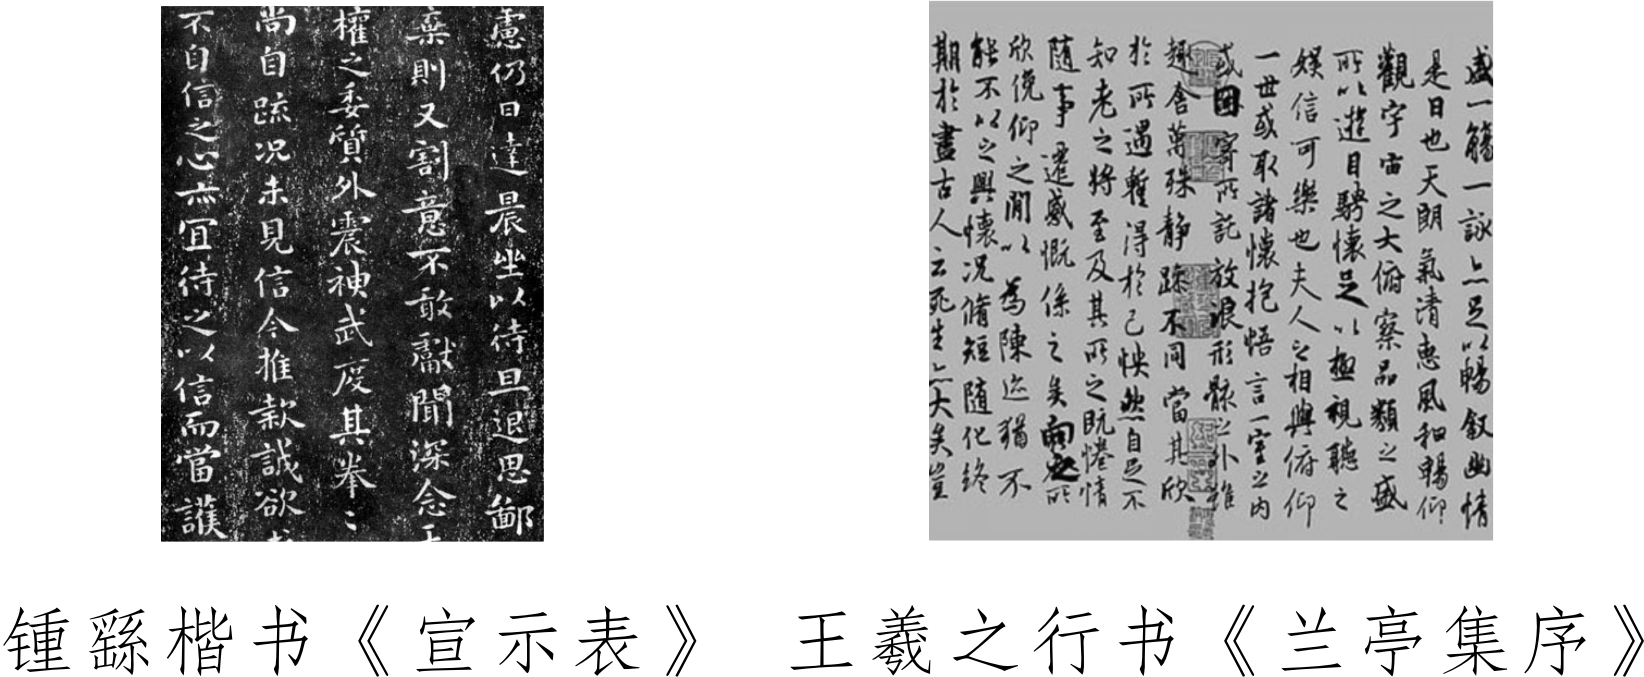 慮仍日達晨坐以待旦退思鄙
棄則又割意不敢獻聞深念王
權之委質外震神武度其拳〻
尚自疏况未見信今推款誠欲求
不自信之心亦宜待之以信而當護
盛一觴一詠亦足以暢叙幽情
是日也天朗氣清惠風和暢仰
觀宇宙之大俯察品類之盛
所以遊目騁懷足以極視聽之
娱信可樂也夫人之相與俯仰
一世或取諸懷抱悟言一室之内
或因寄所託放浪形骸之外雖
趣舍萬殊静躁不同當其欣
於所遇暫得於己怏然自足不
知老之將至及其所之既惓情
隨事遷感慨係之矣向之所
欣俛仰之閒以爲陳迹猶不
能不以之興懷况脩短隨化終
期於盡古人云死生亦大矣豈
锺繇楷书《宣示表》
王羲之行书《兰亭集序》